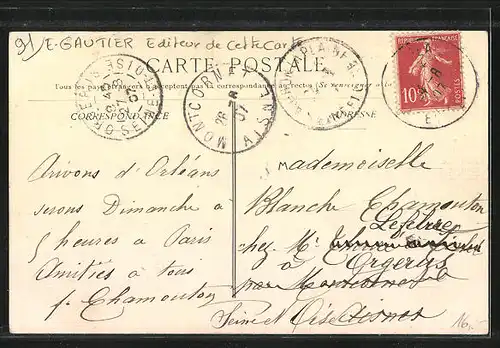 91/ E. GAUTIER Editeur de cette Carte
CARTE POSTALE
Tous les pays étrangers n'acceptent pas la correspondance au recto (Se renseigner
CORRESPONDANCE
ADRESSE
MONTCORNET
AISNE
28 -8 07
SEINE-ET-OISE
27 -8 07
10
POSTES
Arivons d'Orléans
serons Dimanche a
5 heures a Paris
Amitiés a tous
f. Chamouton
Mademoiselle
Blanche Chamouton
Lefebvre
chez Mr
à Orgerus
par Montcornet
Seine et Oise Aisne
16,-